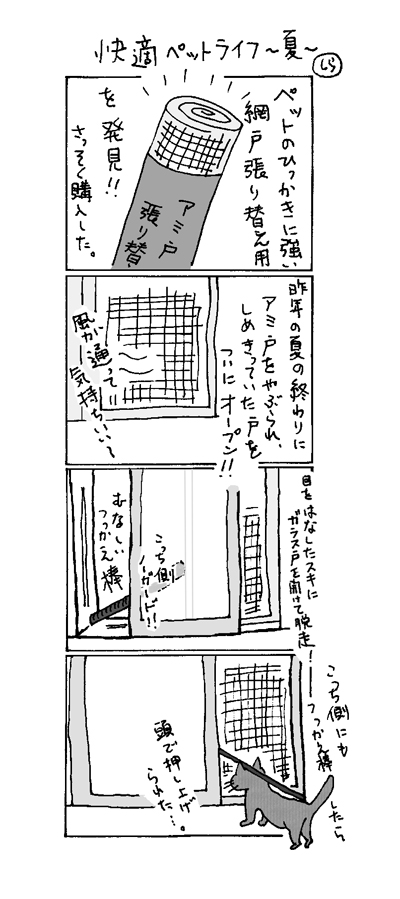 快適ペットライフ～夏～
ペットのひっかきに強い
網戸張り替え用
を発見!!
さっそく購入した。
アミ戸
張り替え
昨年の夏の終わりに
アミ戸をやぶられ、
しめきっていた戸を
ついにオープン!!
風が通って
気持ちいい〜
目をはなしたスキに
ガラス戸を開けて脱走！
こっち側
ノーガード!!
むなしい
つっかえ棒
こっち側にも
つっかえ棒
したら
頭で押し上げ
られた…。